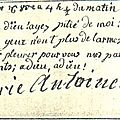 16 8bre a 4 h ½ du matin
dieu ayez pitié de moi !
yeux n'ont plus de larmes
pleurer pour vous mes pau
nts; adieu, adieu!
rie Antoine